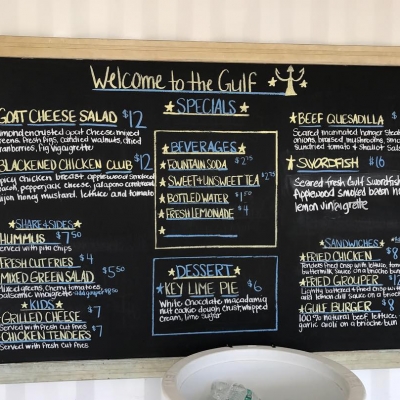 Welcome to the Gulf
SPECIALS
GOAT CHEESE SALAD $12
almond encrusted goat cheese, mixed
greens, fresh figs, candied walnuts, dried
cranberries, fig vinaigrette
BLACKENED CHICKEN CLUB $12
spicy chicken breast applewood smoked
bacon, pepperjack cheese, jalapeno cornbread,
cajun honey mustard, lettuce and tomato
SHARE & SIDES
HUMMUS $7.50
served with pita chips
FRESH CUT FRIES $4
MIXED GREEN SALAD $5.50
mixed greens, cherry tomatoes,
balsamic vinaigrette
KIDS
GRILLED CHEESE $7
Served with fresh cut fries
CHICKEN TENDERS $7
Served with Fresh Cut Fries
BEVERAGES
FOUNTAIN SODA $2.75
SWEET & UNSWEET TEA $2.75
BOTTLED WATER $1.50
FRESH LEMONADE $4
DESSERT
KEY LIME PIE $6
White chocolate macadamia
nut cookie dough crust, whipped
cream, lime sugar
BEEF QUESADILLA $
Seared marinated hanger steak
onions, braised mushrooms,
sundried tomato & shallot
SWORDFISH $16
Seared fresh Gulf Swordfish
Applewood smoked bacon
lemon vinaigrette
SANDWICHES
FRIED CHICKEN $8
tenders fried crisp with lettuce,
buttermilk sauce on a brioche
FRIED GROUPER $12
Lightly battered & fried crisp with
and lemon dill sauce on a brioche
GULF BURGER $8
100% natural beef, lettuce,
garlic aioli on a brioche bun